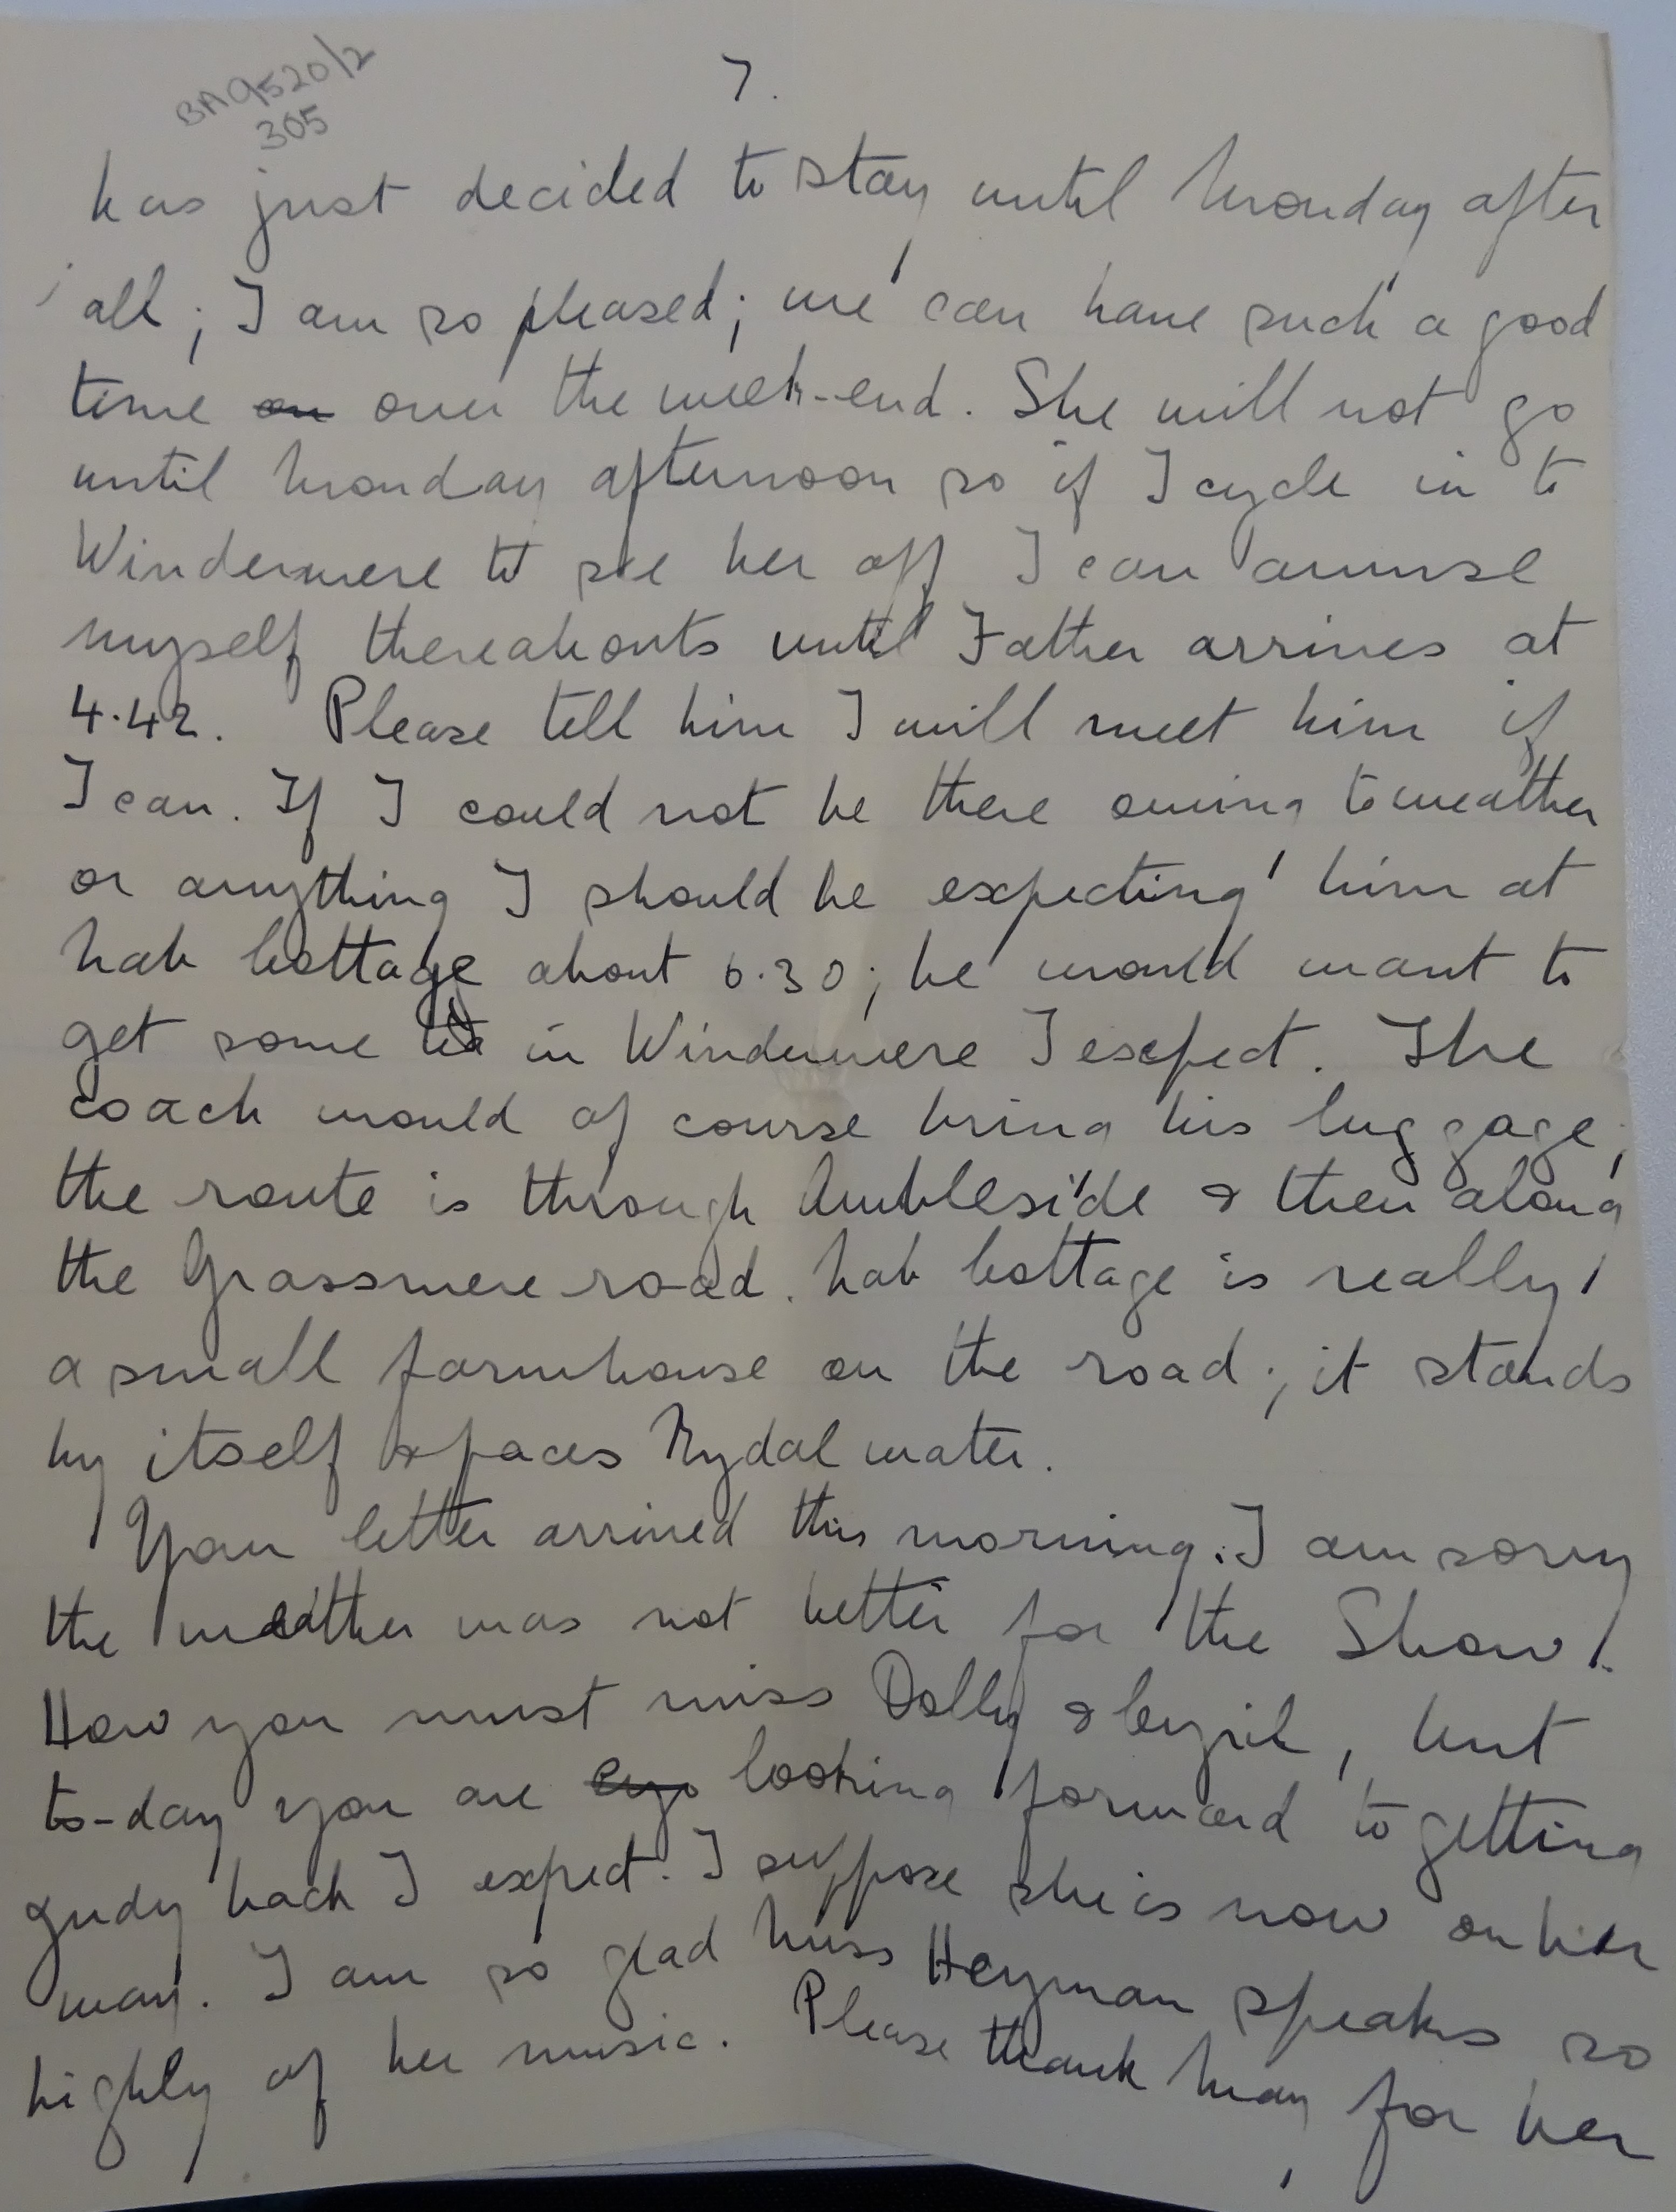 BA9520/2
305
7.
has just decided to stay until Monday after
all; I am so pleased; we can have such a good
time on over the week-end. She will not go
until Monday afternoon so if I cycle in to
Windermere to see her off I can amuse
myself thereabouts until Father arrives at
4.42. Please tell him I will meet him if
I can. If I could not be there owing to weather
or anything I should be expecting him at
Nab Cottage about 6.30; he would want to
get some tea in Windermere I expect. The
coach would of course bring his luggage;
the route is through Ambleside & then along
the Grassmere road. Nab Cottage is really
a small farmhouse on the road; it stands
by itself & faces Rydal water.
Your letter arrived this morning. I am sorry
the weather was not better for the Show!
How you must miss Dolly & Cyril, but
to-day you are looking forward to getting
Judy back I expect. I suppose she is now on her
way. I am so glad Miss Heyman speaks so
highly of her music. Please thank May for her